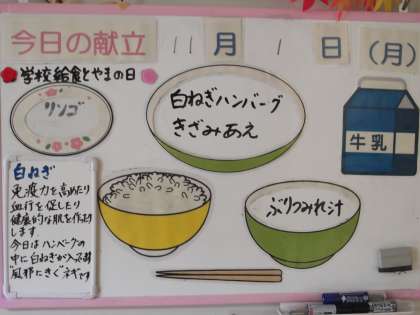 今日の献立 11月1日(月)
学校給食とやまの日
リンゴ
白ねぎハンバーグ
きざみあえ
牛乳
ぶりつみれ汁
白ねぎ
免疫力を高めたり
血行を促したり
健康的な肌を作ったり
します
今日はハンバーグの
中に白ねぎが入ってます
"風邪にきく"ネギです